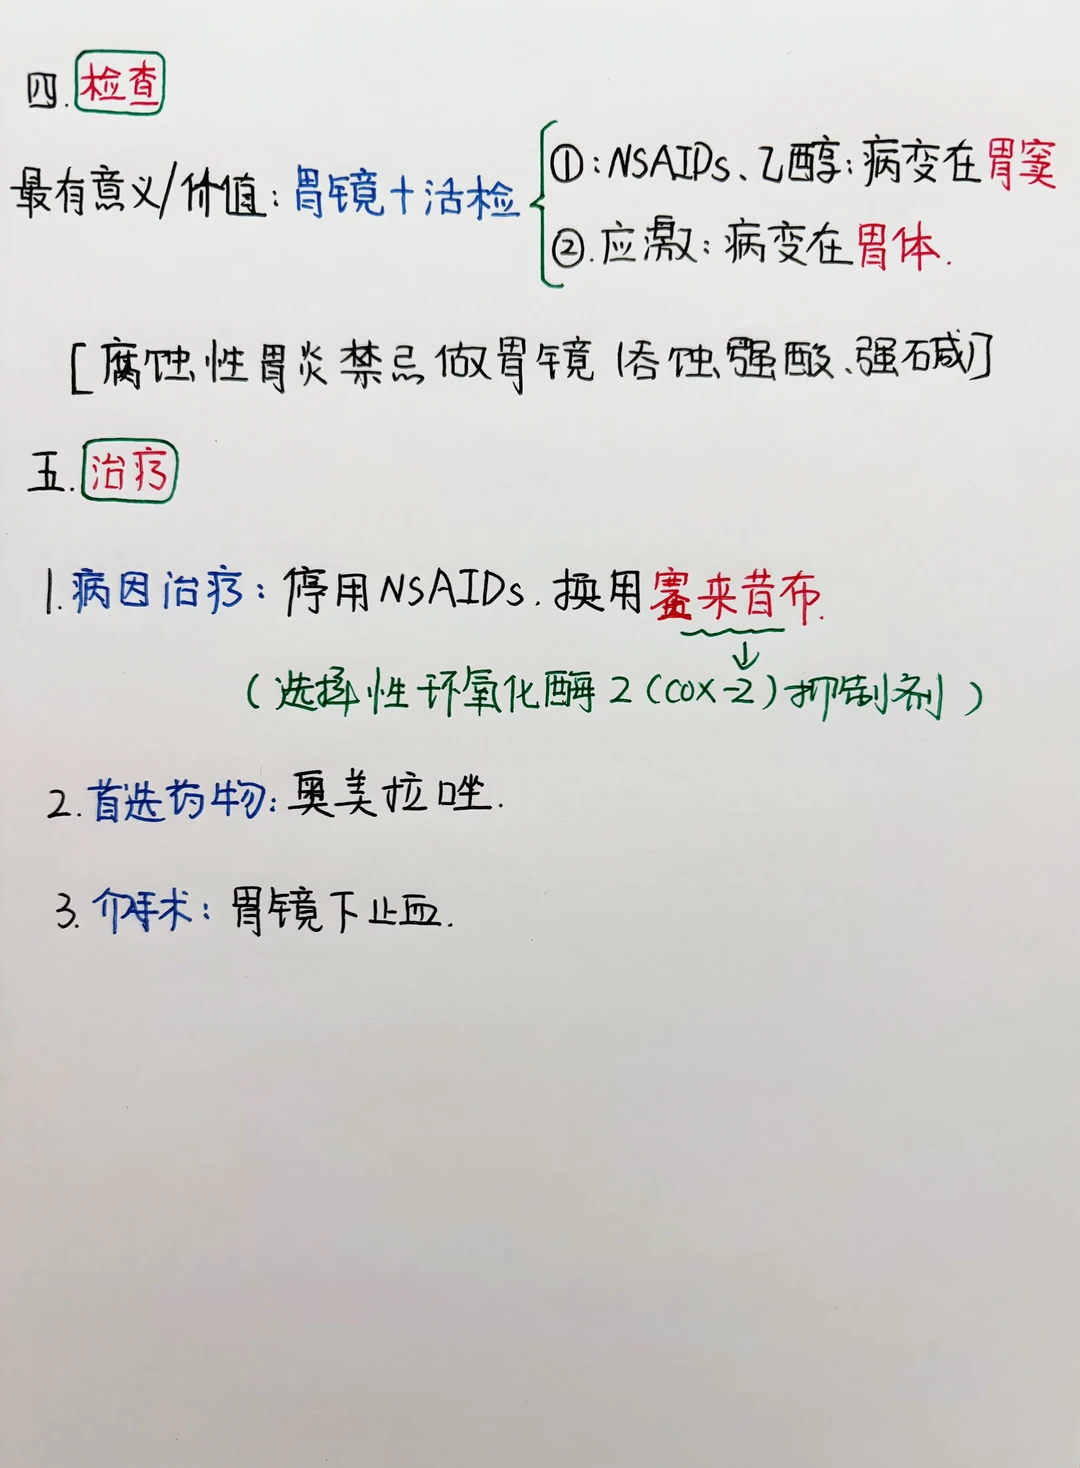 四.检查
最有意义/价值:胃镜+活检
①:NSAIDs、乙醇:病变在胃窦
②.应激:病变在胃体.
[腐蚀性胃炎禁忌做胃镜(吞蚀强酸、强碱)]
五.治疗
1.病因治疗:停用NSAIDs.换用塞来昔布.
↓
(选择性环氧化酶2(COX-2)抑制剂)
2.首选药物:奥美拉唑.
3.手术:胃镜下止血.